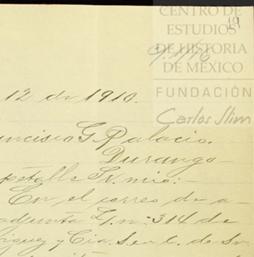 CENTRO DE
ESTUDIOS
DE HISTORIA
DE MÉXICO
FUNDACIÓN
Carlos Slim
19
12 de 1910.
ncisco G. Palacio.
Durango
petable Sr. mio:
En el correo de a-
adjunta G. n: 314 de
iguez y Cia. S. en C. de Sn.